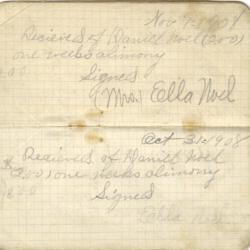 Nov 7-1908
Recieved of Daniel Noel (2.00)
one weeks alimony
2.00
Signed
(Mrs) Ella Noel
Oct 31-1908
Recieved of Daniel Noel
2.00) one weeks alimony
Signed
Ella Noel